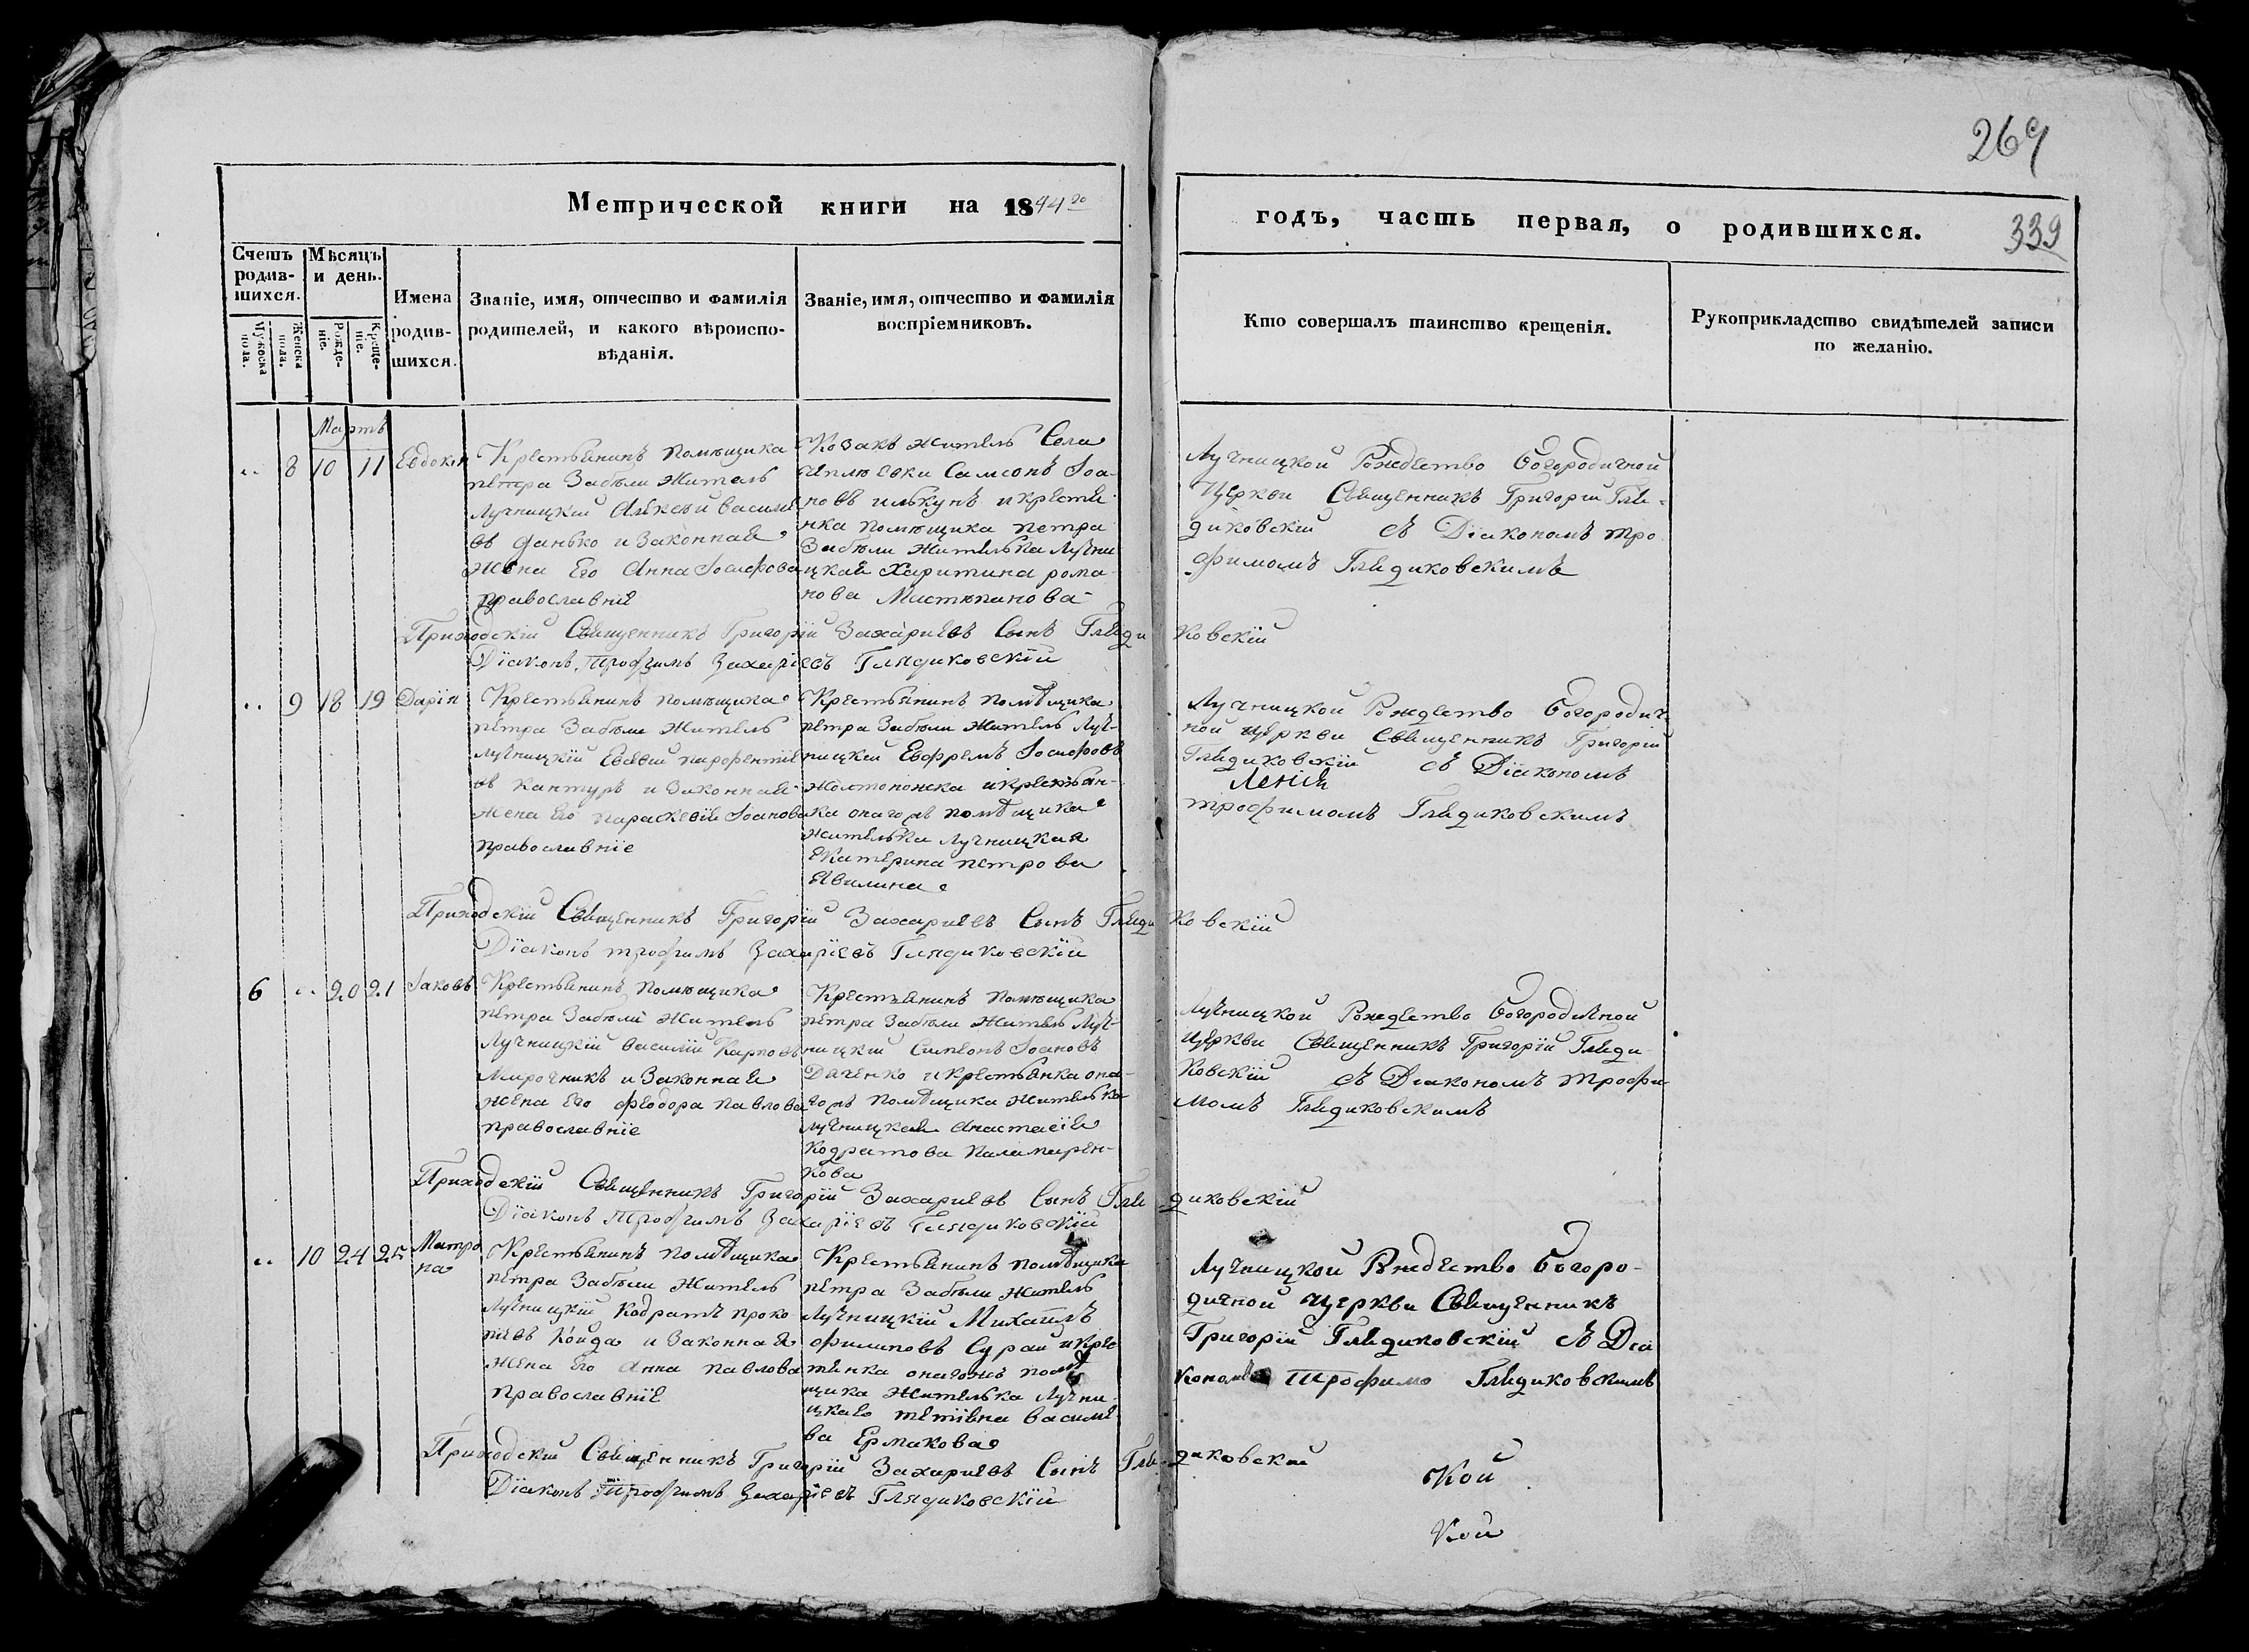 269
Метрической книги на 1844го
годъ, часть первая, о родившихся.
339
Счетъ родив-шихся.
Мужеска пола.
Женска пола.
Мѣсяцъ и день.
Рожде-ніе.
Креще-ніе.
Имена родив-шихся.
Званіе, имя, отчество и фамилія
родителей, и какого вѣроиспо-
вѣданія.
Званіе, имя, отчество и фамилія
воспріемниковъ.
Кто совершалъ таинство крещенія.
Рукоприкладство свидѣтелей записи
по желанію.
Мартъ
8 10 11 Евдокія
Крестьянинъ помѣщика
петра Забѣли Житель
Лучницкій Алексѣй василі
евъ данько и Законная
жена Его Анна Іосифова
православніе
Козакъ житель Села
Самсонъ Іоа-
новъ илькунъ и крестя
нка помѣщика петра
Забѣли жителька Лучни
цкая Харитина рома-
нова
Лучницкой Рождество Богородичной
Церкви Священникъ Григорій Гля-
диковскій съ Діакономъ тро
фимомъ Глядиковскимъ
Приходскій Священникъ Григорій Захаріевъ Сынъ Глядиковскій
Діаконъ Трофимъ Захаріевъ Глядиковскій
9 18 19 Дарія
Крестьянинъ помѣщика
петра Забѣли Житель
лучницкій Евсевій парфентіе
въ кантуръ и Законная
жена Его параскевія Іоанова
православніе
Крестьянинъ помѣщика
петра Забѣли житель Луч-
ницкій Ефремъ Іосифовъ
Жолтоножка и крестьян-
ка онагожъ помѣщика
жителька лучницкая
Екатерина петрова
Явилина
Лучницкой Рождество Богородич
ной Церкви Священникъ Григорій
Глядиковскій съ Діакономъ
трофимомъ Глядиковскимъ
Приходскій Священникъ Григорій Захаріевъ Сынъ Глядиковскій
Діаконъ трофимъ Захаріевъ Глядиковскій
6 20 21 Іаковъ
Крестьянинъ помѣщика
петра Забѣли Житель
Лучницкій василій Карповъ
Мирочникъ и Законная
жена Его феодора павлова
православніе
Крестьянинъ помѣщика
петра Забѣли Житель Луч-
ницкій Симеонъ Іоановъ
Даченко и крестьянка она-
гожъ помѣщика жителька
лучницкая Анастасія
Кодратова Паламарен-
кова
Лучницкой Рождество Богородичной
Церкви Священникъ Григорій Гляди
ковскій съ Діакономъ трофи-
момъ Глядиковскимъ
Приходскій Священникъ Григорій Захаріевъ Сынъ Глядиковскій
Діаконъ Трофимъ Захаріевъ Глядиковскій
10 24 25 Матро
на
Крестьянинъ помѣщика
петра Забѣли Житель
Лучницкій Кодратъ проко
піевъ Койда и Законная
жена Его Анна павлова
православніе
Крестьянинъ помѣщика
петра Забѣли житель
лучницкій Михаилъ
филиповъ Сурай и кресть
янка онагожъ помѣ
щика жителька Лучни
цкая тетіяна василіе
ва Ермакова
Лучницкой Рождество Богоро-
дичной Церкви Священникъ
Григорій Глядиковскій съ Діа
кономъ Трофимо Глядиковскимъ
Приходскій Священникъ Григорій Захаріевъ Сынъ Глядиковскій
Діаконъ Трофимъ Захаріевъ Глядиковскій
Кой
Кой